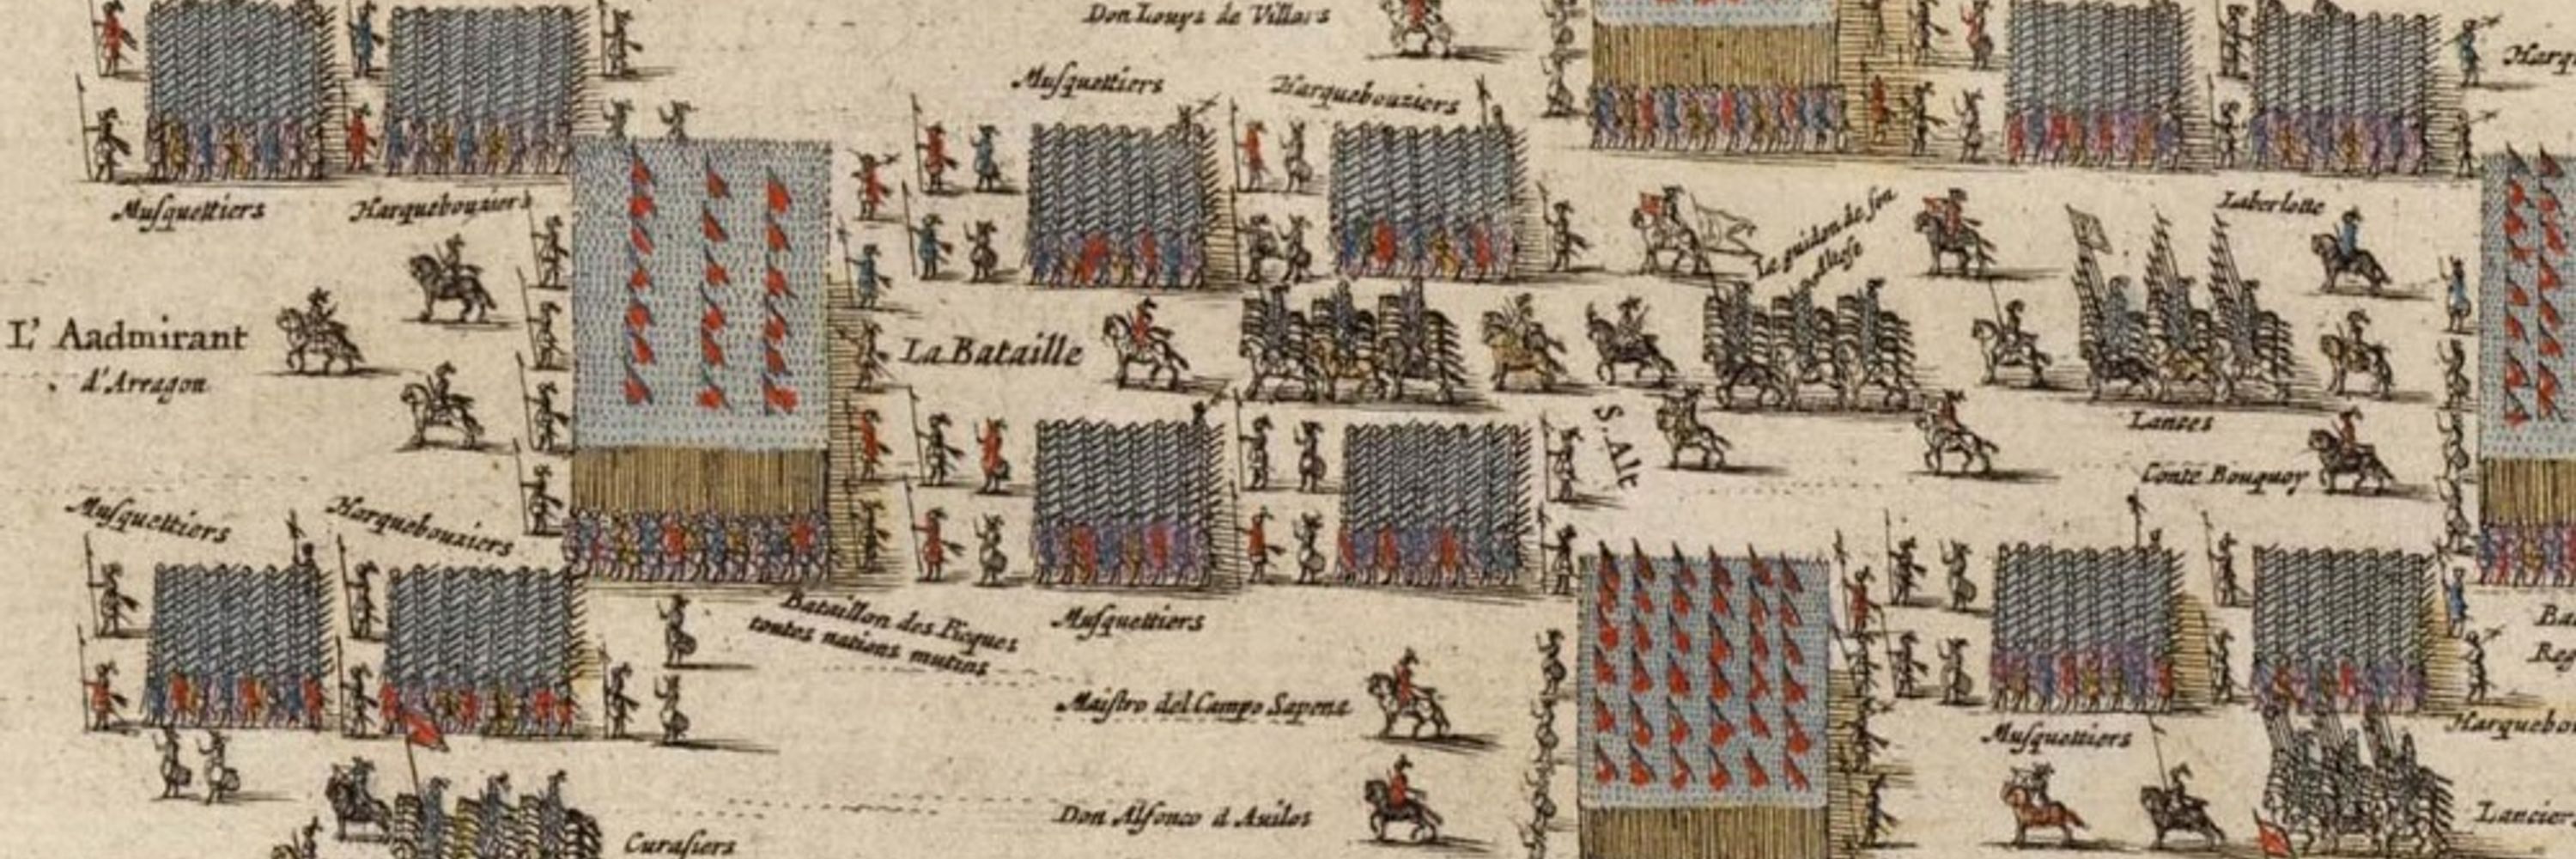 Don Louys de Villars
Musquettiers
Harquebouziers
Harq
Musquettiers
Harquebouziers
Le guidon de son
Altese
Laberlotte
L' Aadmirant
d'Arragon
La Bataille
Lances
S Alt
Conte Bouquoy
Musquettiers
Harquebouziers
Bataillon des Picques
toutes nations mutins
Musquettiers
Ba
Reg
Maistro del Campo Sapena
Musquettiers
Harquebo
Don Alfonco d Auilos
Lancier
Curasiers